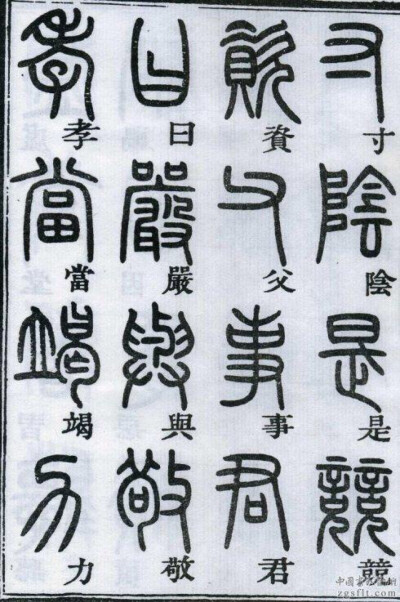 寸陰是競
資父事君
曰嚴與敬
孝當竭力
中国书法国朝
zgsflt.com